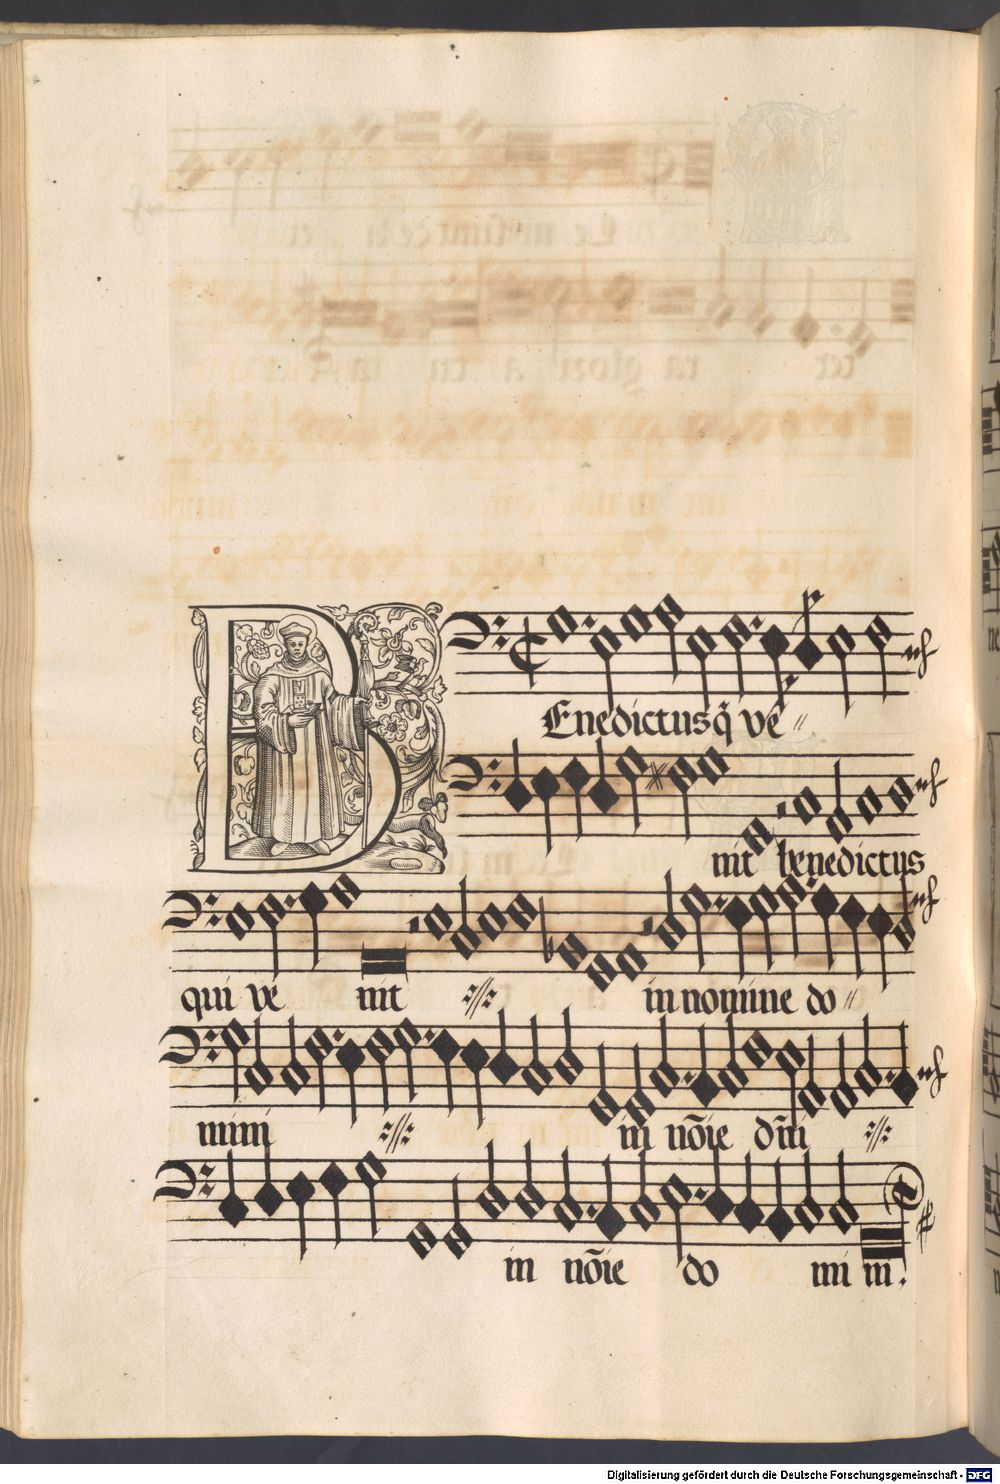 BEnedictus q̃ ve
nit benedictus
qui ve nit in nomine do
mini in nõie dñi
in nõie do mi ni.
Digitalisierung gefördert durch die Deutsche Forschungsgemeinschaft - DFG